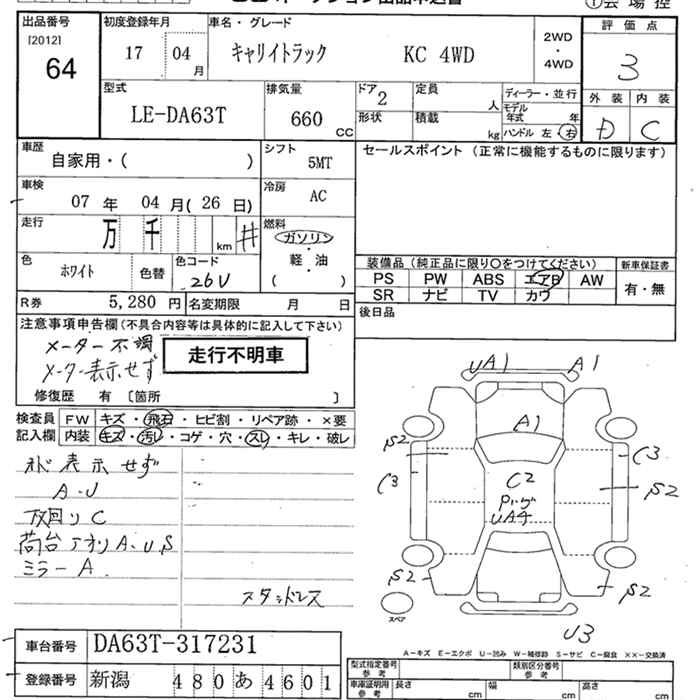 ①会場控
出品番号 初度登録年月 車名・グレード 評価点
[2012]
64
17 04 月
キャリイトラック KC 4WD
2WD
・
4WD
3
型式 排気量 ドア 定員 ディーラー・並行 外装 内装
LE-DA63T 660 CC 2 人
モデル年式 年
形状 積載 kg ハンドル 左・右
D C
車歴 シフト セールスポイント (正常に機能するものに限ります)
自家用・( ) 5MT
車検 冷房
07 年 04 月( 26 日) AC
走行 燃料
万 千 km #
ガソリン
・
軽・油
( )
色 色コード
ホワイト 色替 26U
装備品 (純正品に限り○をつけてください) 新車保証書
PS PW ABS エアB AW
SR ナビ TV カワ
有・無
R券 5,280 円 名変期限 月 日
後日品
注意事項申告欄(不具合内容等は具体的に記入して下さい)
メーター不調
メーター表示せず
走行不明車
修復歴 有 [箇所 ]
検査員 FW キズ・飛石・ヒビ割・リペア跡・×要
記入欄 内装 キズ・汚レ・コゲ・穴・スレ・キレ・破レ
オド表示せず
A・U
下回りC
荷台アオリA・U,S
ミラーA
スタッドレス
UA1 A1
A1
S2 C3
C3 C2 S2
UA4
S2 S2
スペア
U3
A-キズ E-エクボ U-凹み W-補修跡 S-サビ C-腐食 ××-交換済
車台番号 DA63T-317231
登録番号 新潟 480 あ 4601
型式指定番号 参考 類別区分番号 参考
車庫証明用 参考 長さ cm 幅 cm 高さ cm